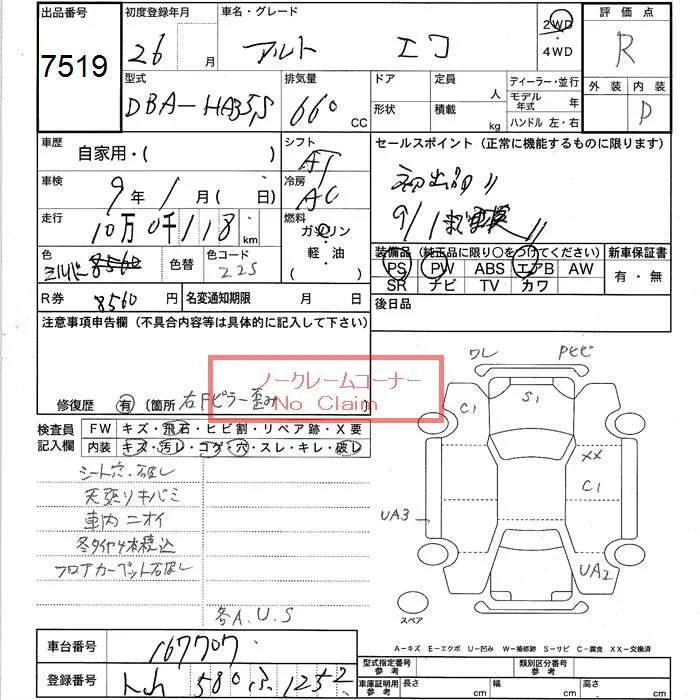 出品番号
7519
初度登録年月
26 月
車名・グレード
アルト エコ
2WD
・
4WD
評価点
R
外装 内装
D
型式
DBA-HA35S
排気量
660 CC
ドア
形状
定員 人
積載 kg
ディーラー・並行
モデル年式 年
ハンドル 左・右
車歴
自家用・( )
シフト
AT
車検
9年1月( 日)
冷房
AC
走行
10万0千118 km
燃料
ガソリン
軽・油
( )
色
シルバー 8560
色替
色コード
Z2S
R券 8560 円
名変通知期限 月 日
セールスポイント(正常に機能するものに限ります)
初出品〃
装備品(純正品に限り○をつけてください)
PS PW ABS エアB AW
SR ナビ TV カワ
新車保証書
有・無
後日品
注意事項申告欄(不具合内容等は具体的に記入して下さい)
ノークレームコーナー
No Claim
修復歴 有(箇所 右Fピラー歪み
検査員記入欄
FW キズ・飛石・ヒビ割・リペア跡・X要
内装 キズ・汚レ・コゲ・穴・スレ・キレ・破レ
シート穴・破レ
天張りキバミ
車内ニオイ
冬タイヤ4本積込
フロアカーペット破レ
各A.U.S
ワレ
Pヒビ
S1
C1
XX
C1
UA3
UA2
スペア
A-キズ E-エクボ U-凹み W-補修跡 S-サビ C-腐食 XX-交換済
車台番号 167707
登録番号 580 ふ 1252
型式指定番号 参考
類別区分番号 参考
車庫証明用 参考
長さ cm
幅 cm
高さ cm